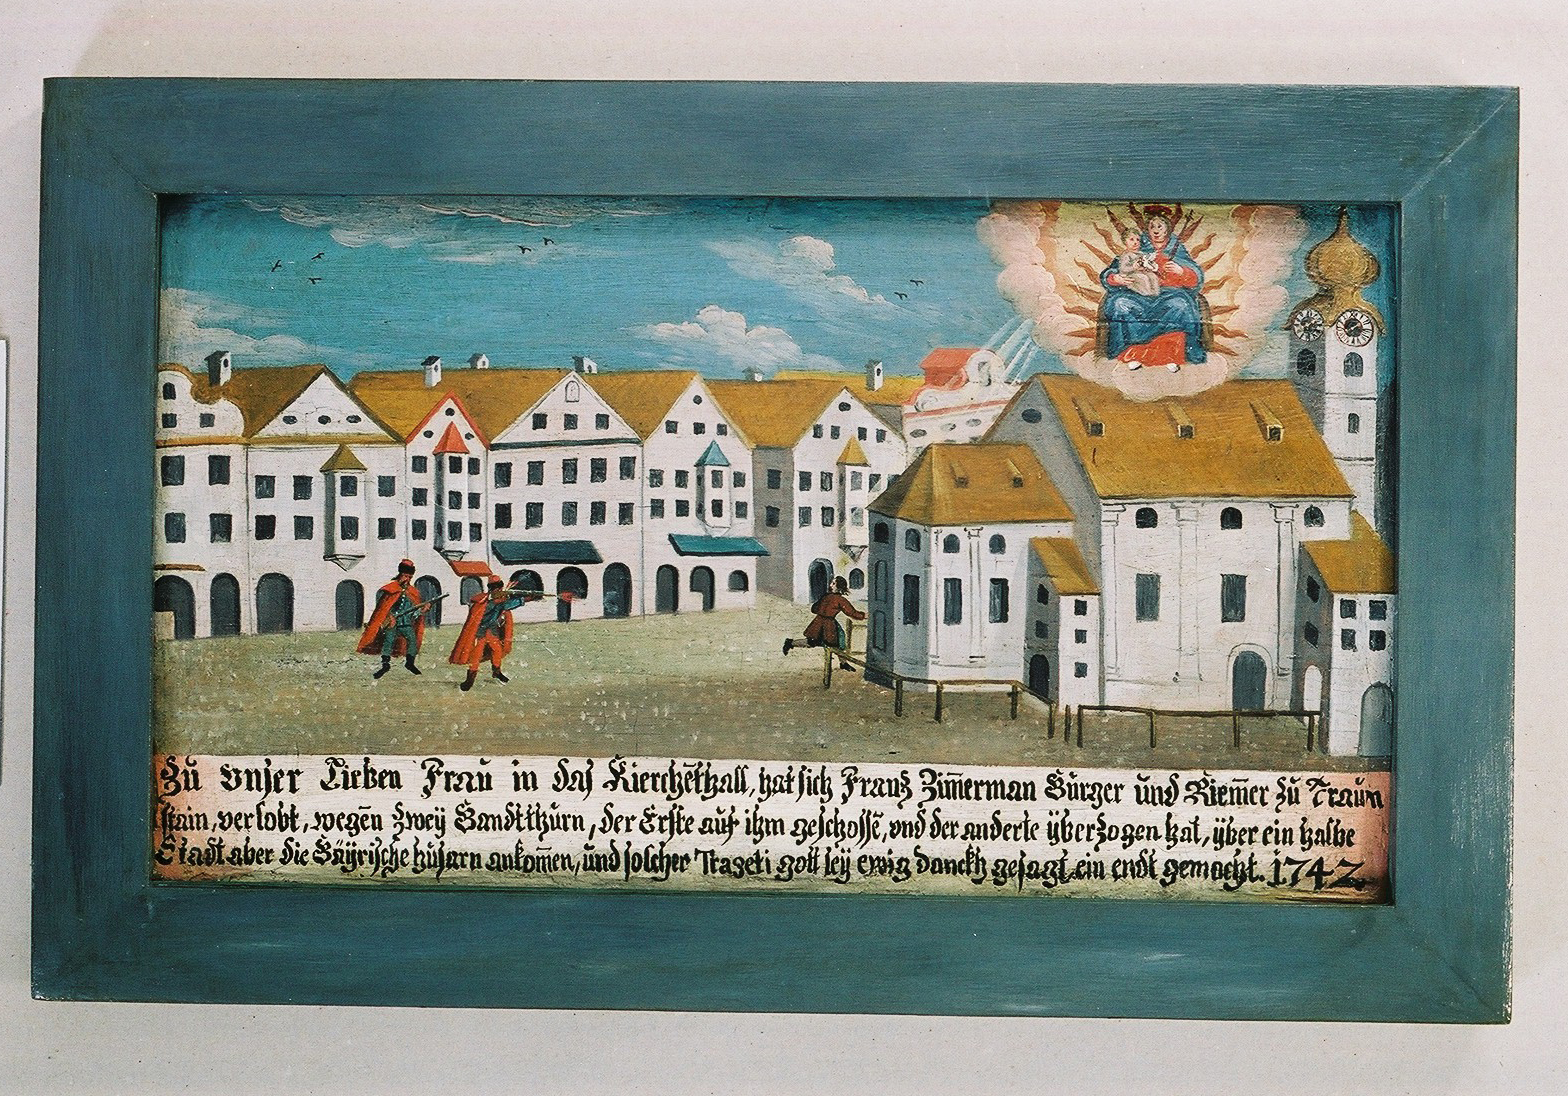 Zu vnser Lieben Frau in das Kierchẽthall, hat sich Franz Zim̃erman Burger und Riem̃er zu Traun
stain, verlobt, wegen zweÿ Bandtthurn, der Erste auf ihm geschossẽ, vnd der anderte überzogen hat, über ein halbe
Stadt aber die Baÿrische husarn ankom̃en, und solcher Trageti gott seÿ ewig danckh gesagt, ein endt gemacht. 1742